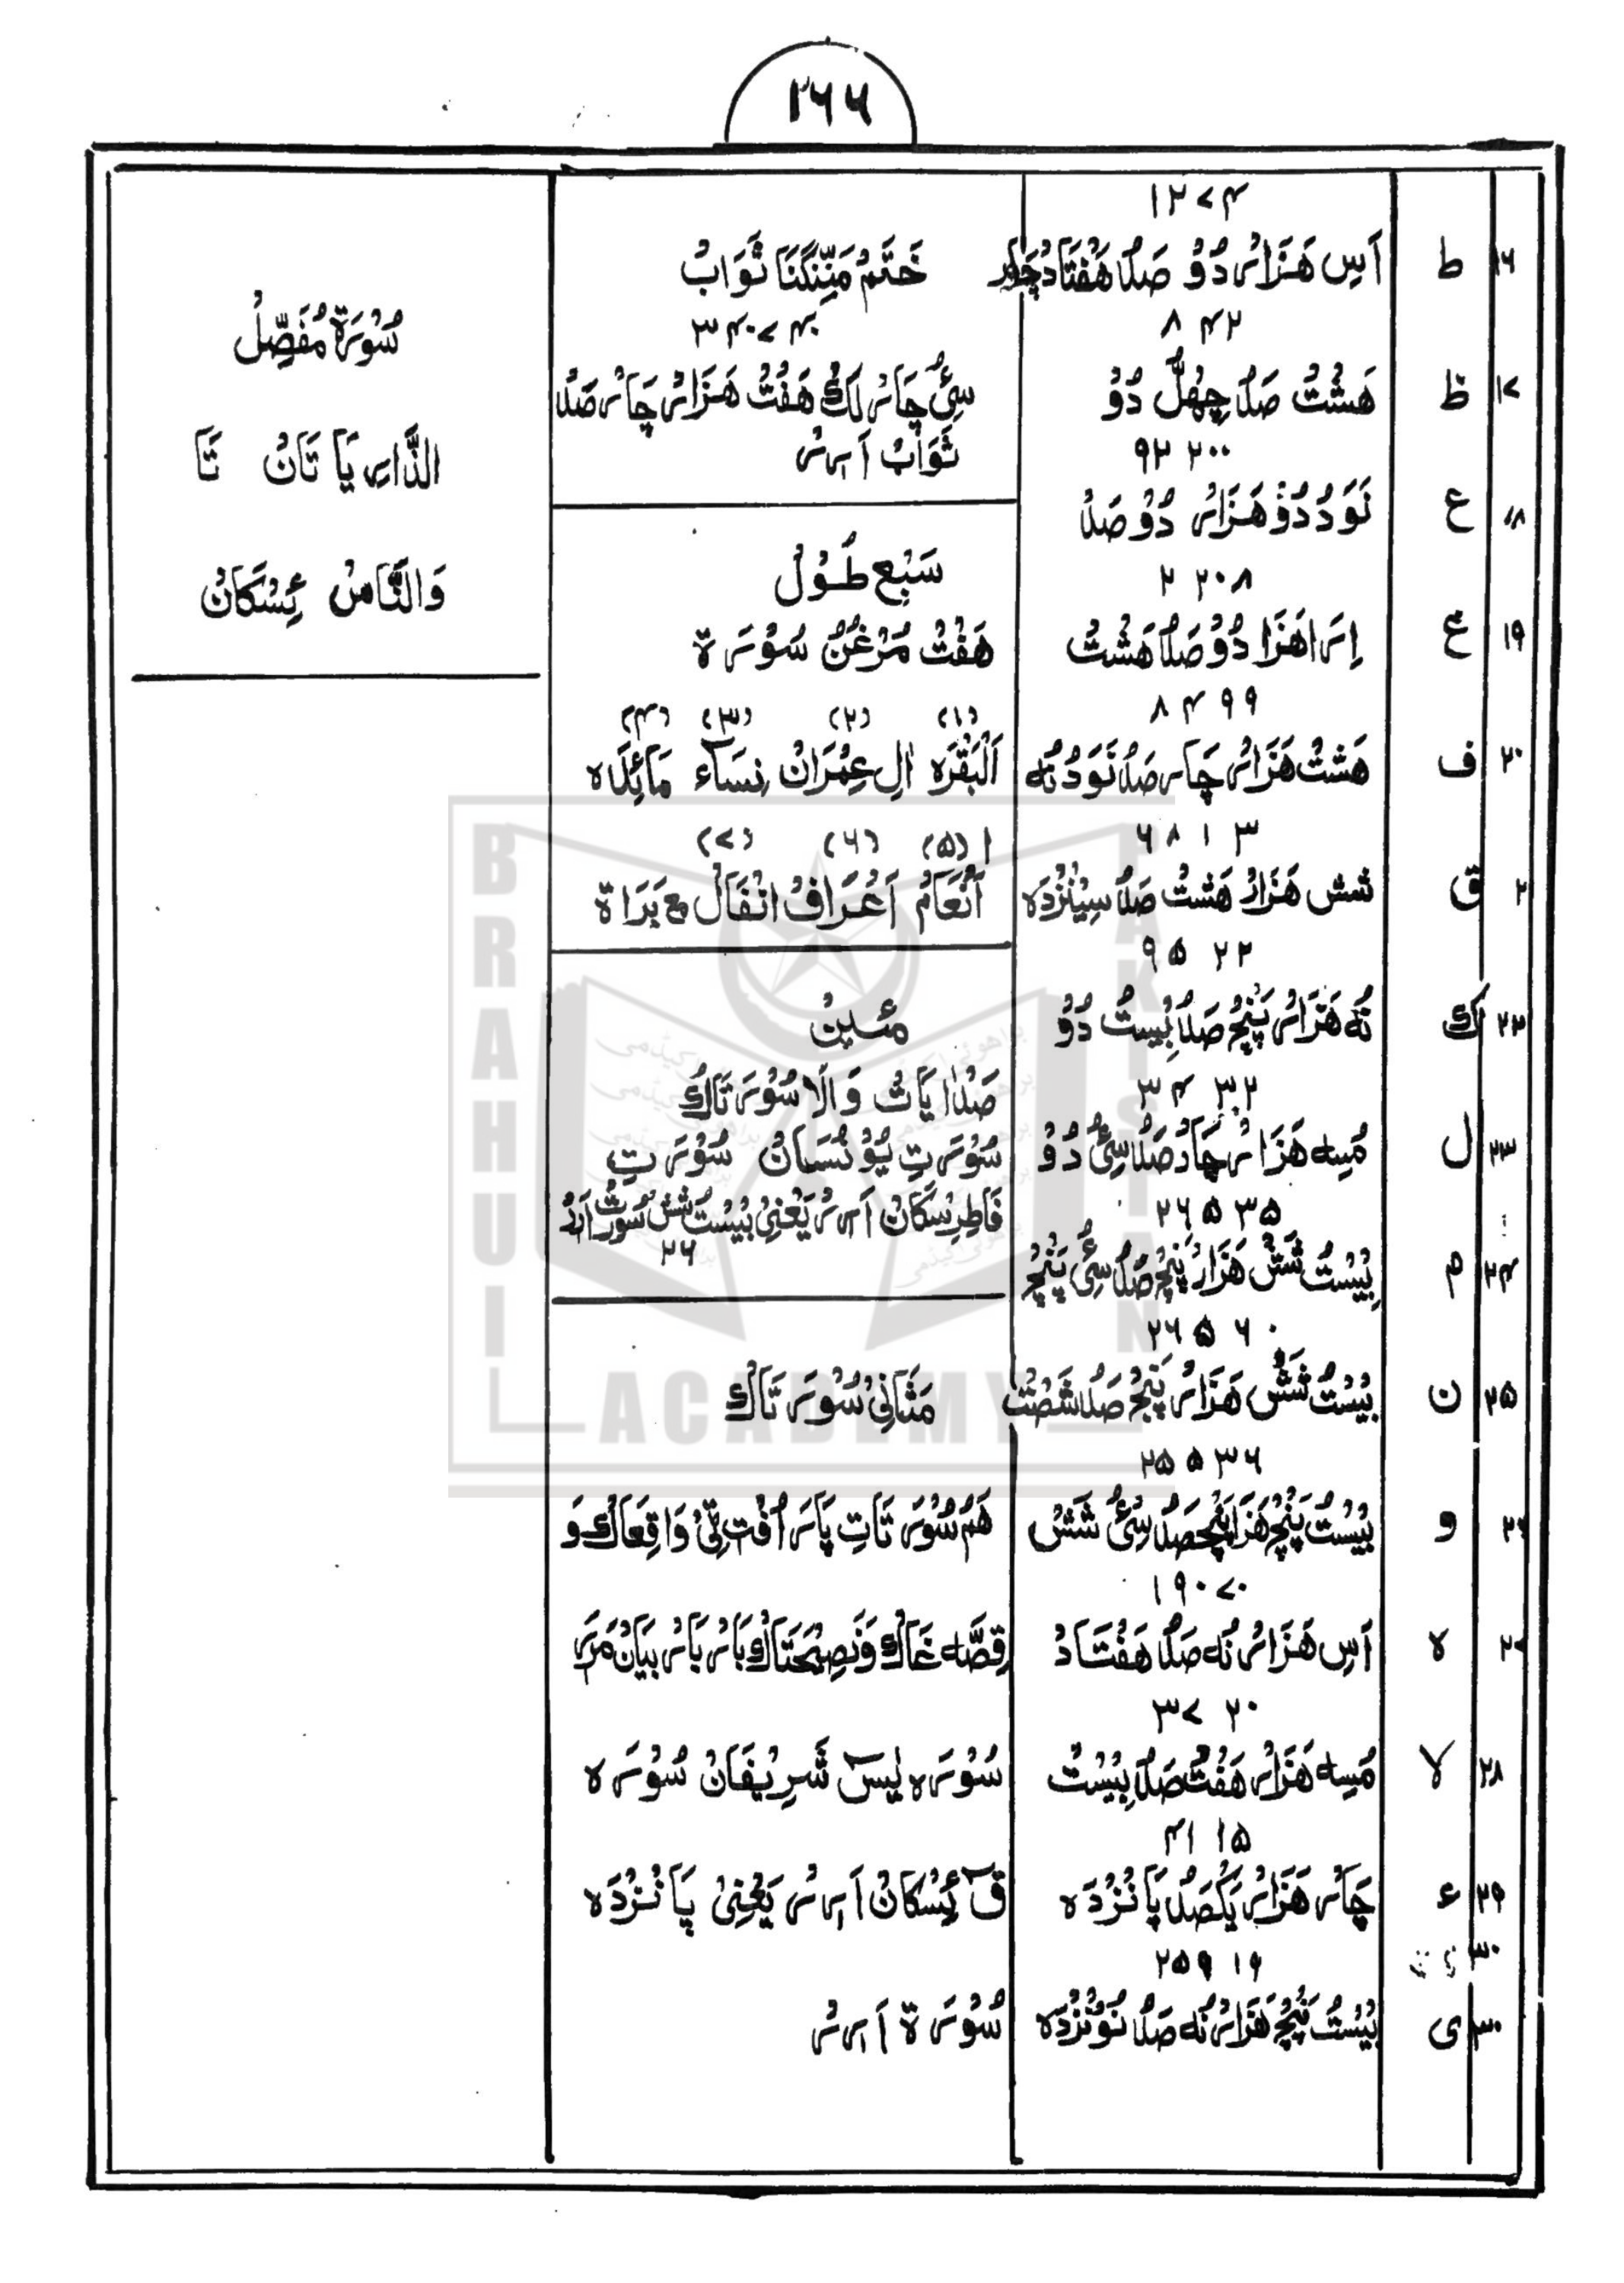 ۱۶۶
۱۶ ط ۱۲۷۴
اَسِ هَزَارْ دُوْ صَدْ هَفْتَادْ چَار
۱۷ ظ ۸۴۲
هَشْتْ صَدْ چِهْلْ دُوْ
۱۸ ع ۹۲۲۰۰
نَوَدْ دُوْ هَزَارْ دُوْ صَدْ
۱۹ غ ۲۲۰۸
اِرَا هَزَا دُوْ صَدْ هَشْتْ
۲۰ ف ۸۴۹۹
هَشْتْ هَزَارْ چَار صَدْ نَوَدْ نُه
۲ ق ۶۸۱۳
شش هَزَارْ هَشْتْ صَدْ سِيْنْزْدَه
۲۲ ك ۹۵۲۲
نُه هَزَارْ پَنْچْ صَدْ بِيْسْتْ دُوْ
۲۳ ل ۳۴۳۲
مُسِه هَزَارْ چَارْ صَدْ سِيْ دُوْ
۲۴ م ۲۶۵۳۵
بِيْسْتْ شَشْ هَزَارْ پَنْچْ صَدْ سِيْ پَنْچْ
۲۵ ن ۲۶۵۶۰
بِيْسْتْ شَشْ هَزَارْ پَنْچْ صَدْ شَصْتْ
۲۶ و ۲۵۵۳۶
بِيْسْتْ پَنْچْ هَزَا پَنْچْ صَدْ سِيْ شَشْ
۲۷ ه ۱۹۰۷۰
اَسِ هَزَارْ نُه صَدْ هَفْتَادْ
۲۸ لا ۳۷۲۰
مُسِه هَزَارْ هَفْتْ صَدْ بِيْسْتْ
۲۹ ء ۴۱۱۵
چَارْ هَزَارْ يَكْصَدْ پَانْزْدَه
۳۰
۳۰ ی ۲۵۹۱۹
بِيْسْتْ پَنْچْ هَزَارْ نُه صَدْ نَوْنْزْدَه
خَتَمْ مَنِّنْگَنَا ثَوَابْ
۳۴۰۷۴۰
سِيْ چَارْ لَكْ هَفْتْ هَزَارْ چَارْ صَدْ
ثَوَابْ اَرِرْ
سَبْعِ طُوْلْ
هَفْتْ مُرْغُنْ سُوْرَة
(۱) (۲) (۳) (۴)
اَلْبَقْرَه اٰلِ عِمْرَانْ نِسَآء مَائِدَه
(۵) (۶) (۷)
اَنْعَامْ اَعْرَافْ انْفَالْ مع بَرَاة
مئِينْ
صَدْ اٰيَاتْ وَالَا سُوْرَتَاكْ
سُوْرَتِ يُوْنُسَانْ سُوْرَتِ
فَاطِرِسْكَانْ اَرِرْ يَعْنِيْ بِيْسْتْ شَشْ سُوْرَتْ اَرِرْ
۲۶
مَثَانِيْ سُوْرَتَاكْ
هَمْ سُوْرَتَاتِ پَارَا اُفْتِ ٹِيْ وَاقِعَاكْ وَ
قِصَّه غَاكْ وَ نَصِيْحَتَاكْ بَارْ بَارْ بَيَانْ مَرَرَ
سُوْرَه يٰسٓ شَرِيْفَانْ سُوْرَه
قٓ ئِسْكَانْ اَرِرْ يَعْنِيْ پَانْزْدَه
سُوْرَة اَرِرْ
سُوْرَة مُفَصِّلْ
الذَّارِيَا تَانْ تَا
وَالنَّاسْ ئِسْكَانْ
BRAHUI
ACADEMY
PAKISTAN
براهوئی اکیڈمی